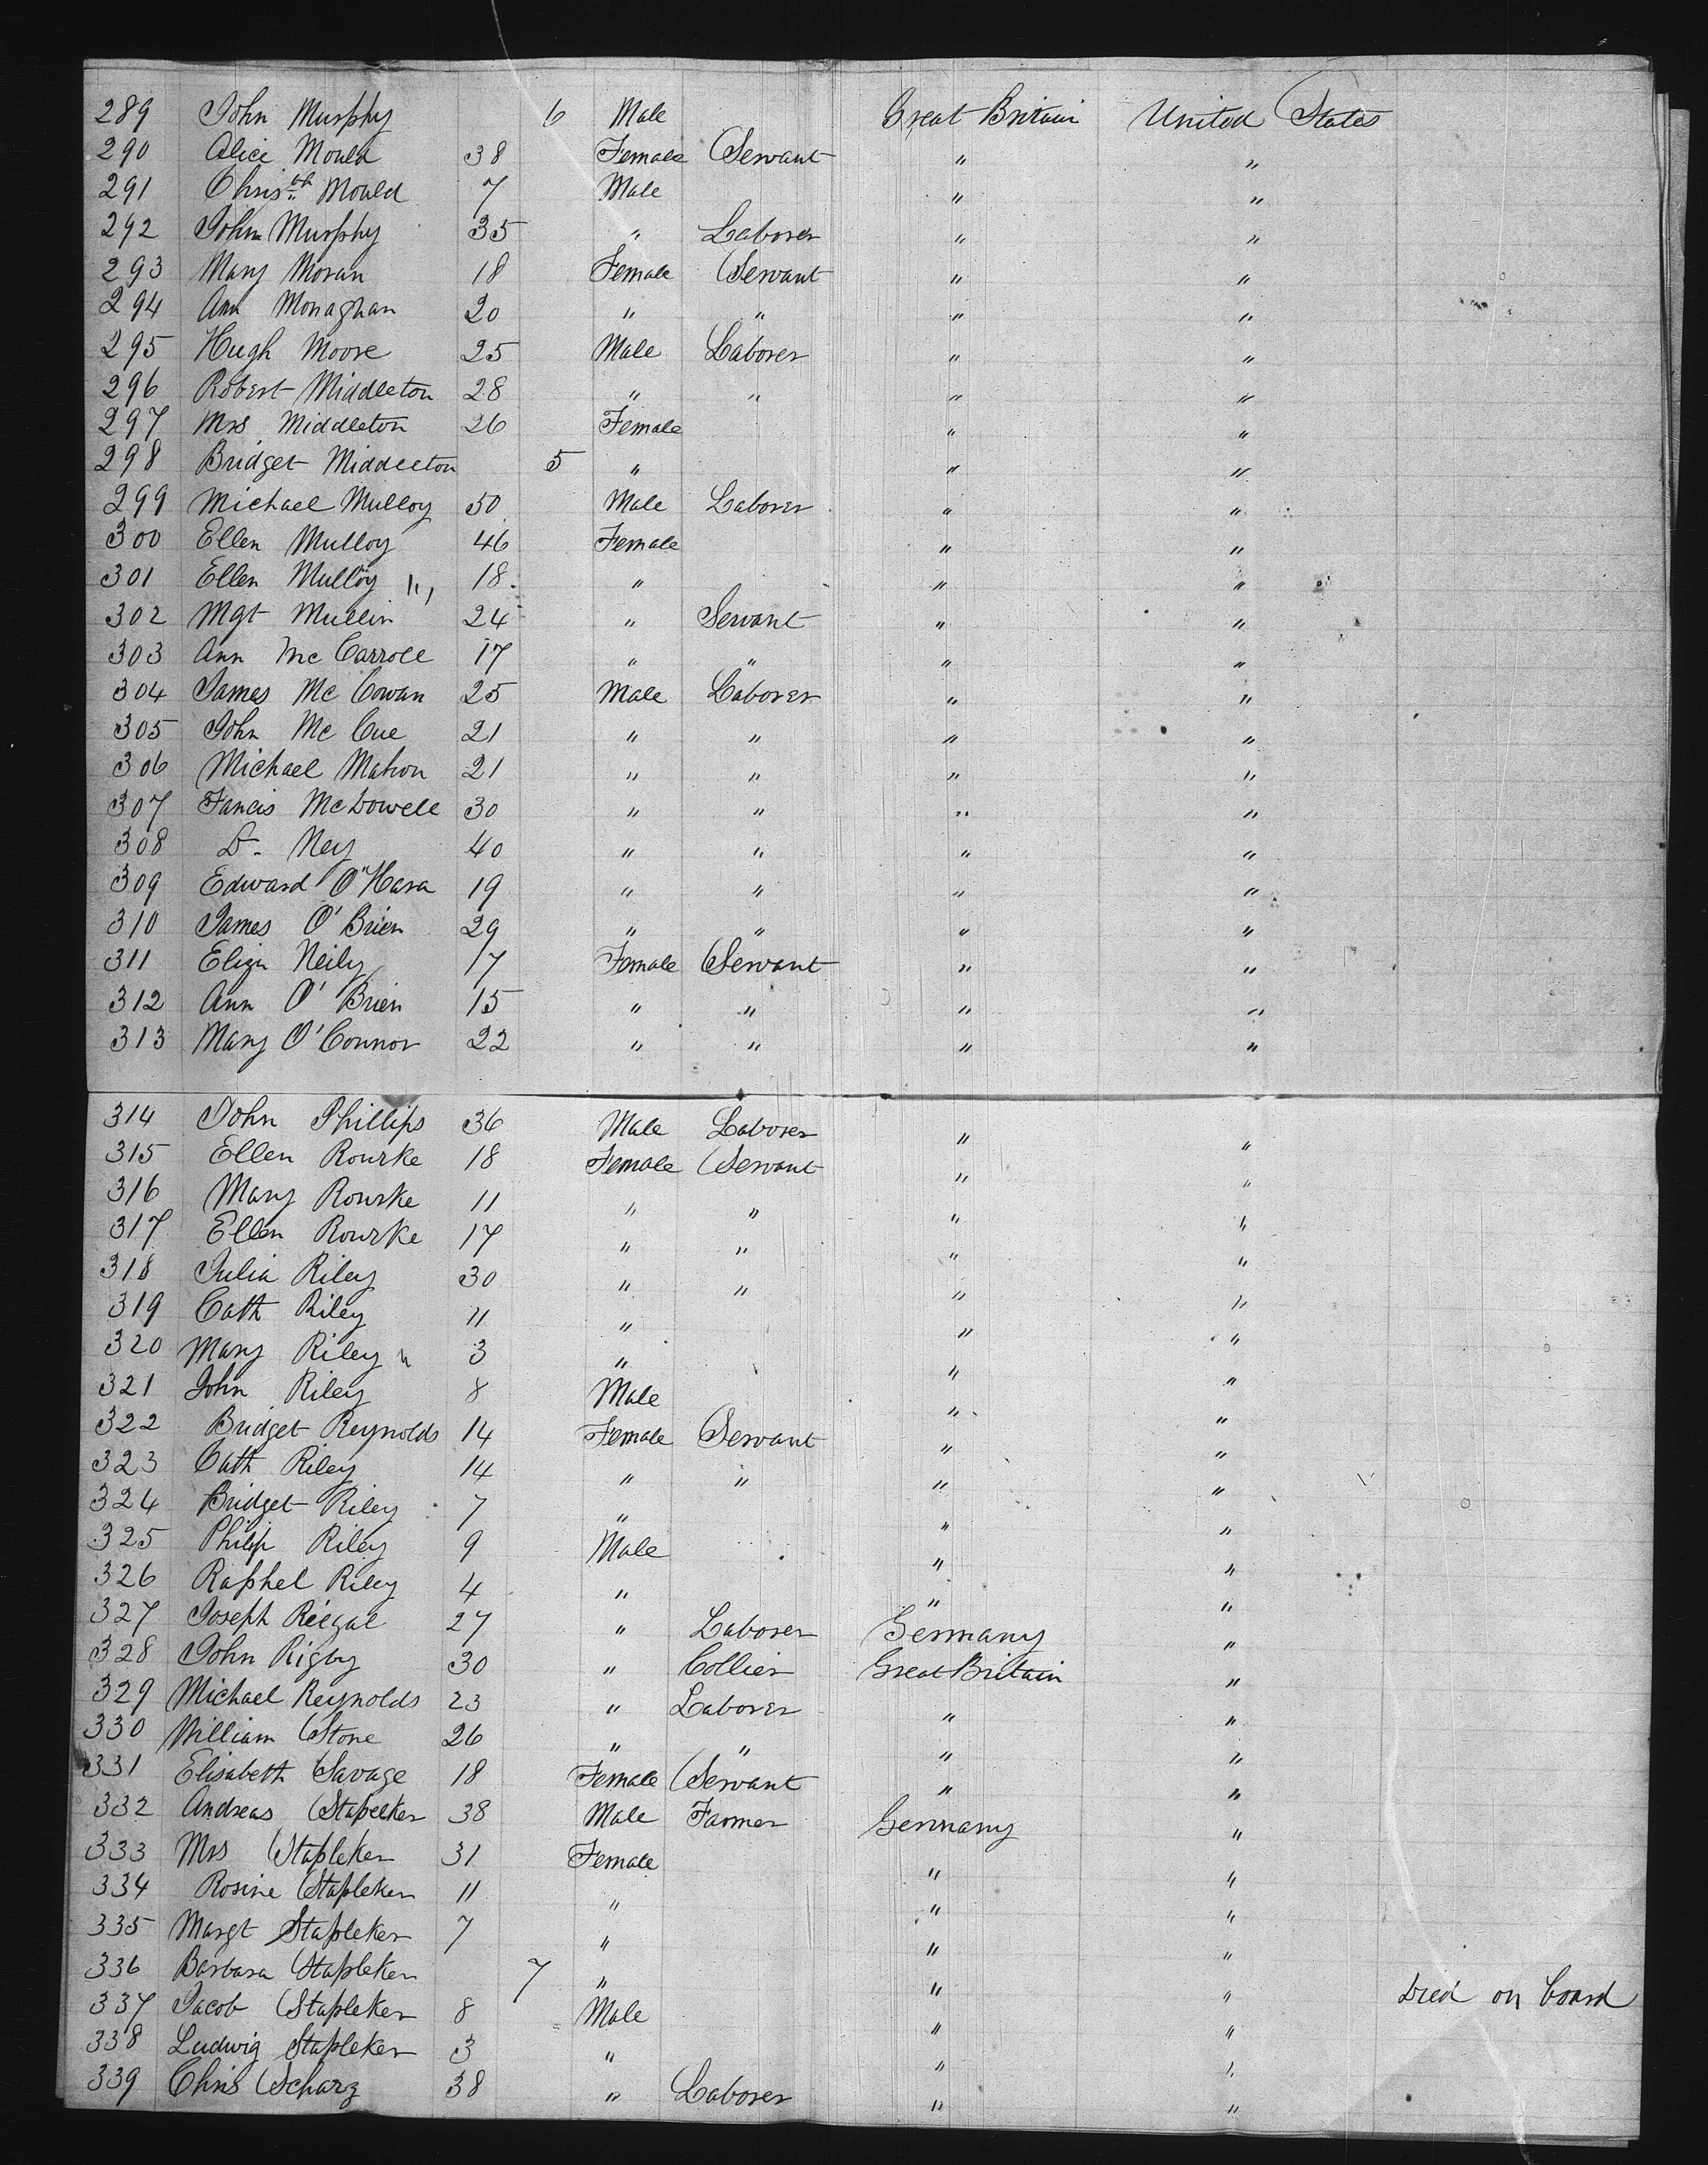 289 John Murphy 6 Male Great Britain United States
290 Alice Mould 38 Female Servant " "
291 Chris Mould 7 Male " "
292 John Murphy 35 " Laborer " "
293 Mary Moran 18 Female Servant " "
294 Ann Monaghan 20 " " " "
295 Hugh Moore 25 Male Laborer " "
296 Robert Middleton 28 " " " "
297 Mrs Middleton 26 Female " "
298 Bridget Middleton 5 " " "
299 Michael Mulloy 50 Male Laborer " "
300 Ellen Mulloy 46 Female " "
301 Ellen Mulloy 18 " " "
302 Mgt Mullin 24 " Servant " "
303 Ann McCarroll 17 " " " "
304 James McCowan 25 Male Laborer " "
305 John McCue 21 " " " "
306 Michael Mahon 21 " " " "
307 Fancis McDowell 30 " " " "
308 D. Ney 40 " " " "
309 Edward O'Hara 19 " " " "
310 James O'Brien 29 " " " "
311 Eliza Neily 17 Female Servant " "
312 Ann O'Brien 15 " " " "
313 Mary O'Connor 22 " " " "
314 John Phillips 36 Male Laborer " "
315 Ellen Rourke 18 Female Servant " "
316 Mary Rourke 11 " " " "
317 Ellen Rourke 17 " " " "
318 Julia Riley 30 " " " "
319 Cath Riley 11 " " "
320 Mary Riley 3 " " "
321 John Riley 8 Male " "
322 Bridget Reynolds 14 Female Servant " "
323 Cath Riley 14 " " " "
324 Bridget Riley 7 " " "
325 Philip Riley 9 Male " "
326 Raphel Riley 4 " " "
327 Joseph 27 " Laborer Germany "
328 John Rigby 30 " Collier Great Britain "
329 Michael Reynolds 23 " Laborer " "
330 William Stone 26 " " " "
331 Elisabeth Savage 18 Female Servant " "
332 Andreas Stapelker 38 Male Farmer Germany "
333 Mrs Stapleker 31 Female " "
334 Rosine Stapleker 11 " " "
335 Margt Stapleker 7 " " "
336 Barbara Stapleker 7 " " " Died on board
337 Jacob Stapleker 8 Male " "
338 Ludwig Stapleker 3 " " "
339 Chris Scharz 38 " Laborer " "